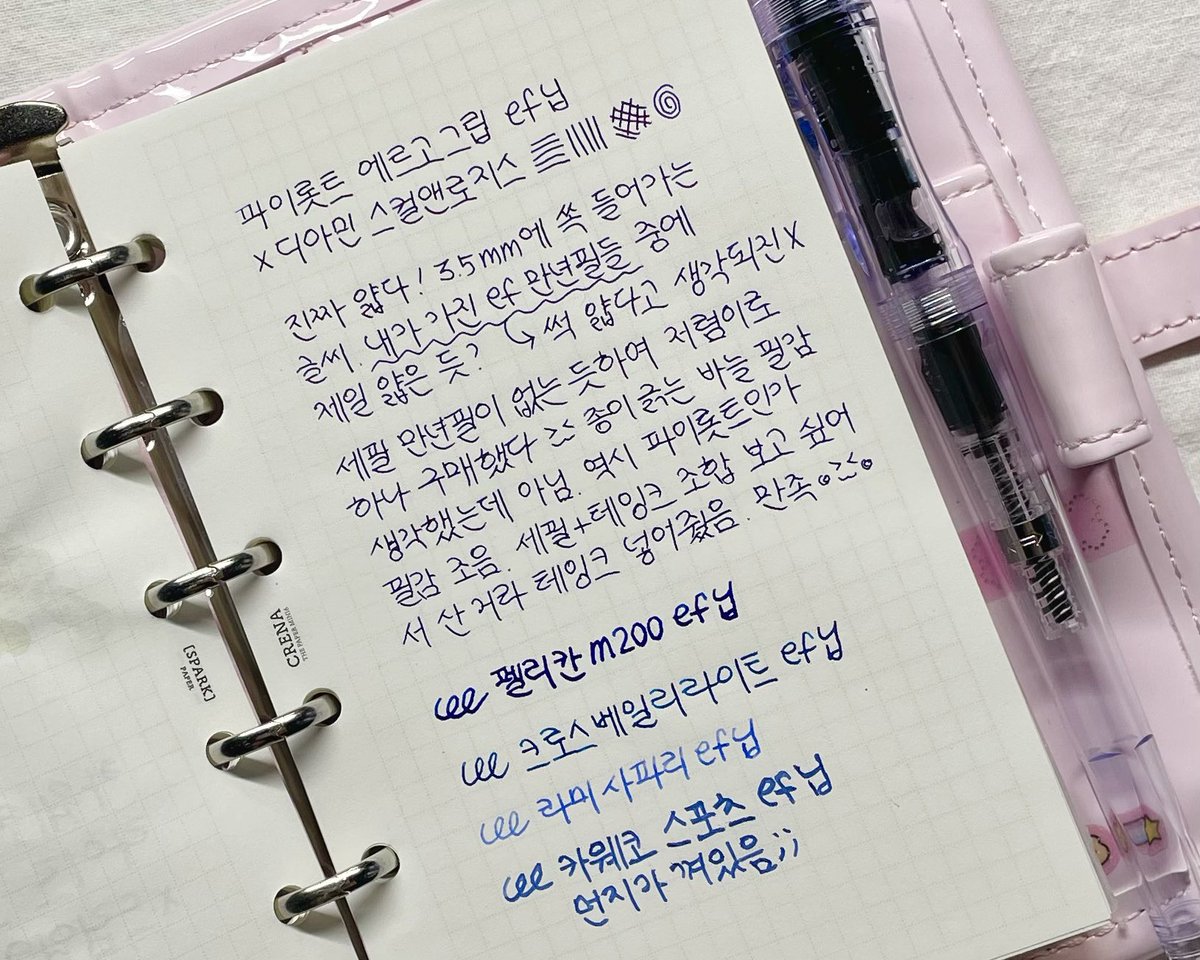 파이롯트 에르고그립 ef닙
x 디아민 스컬앤로지스
진짜 얇다! 3.5mm에 쏙 들어가는
글씨. 내가 가진 ef 만년필들 중에
제일 얇은 듯? ↳ 썩 얇다고 생각되진 X
세필 만년필이 없는 듯하여 저렴이로
하나 구매했다 ㅎㅎ 종이 긁는 바늘 필감
생각했는데 아님. 역시 파이롯트인가
필감 조음. 세필+테잉크 조합 보고 싶어
서 산 거라 테잉크 넣어줬음. 만족
펠리칸 m200 ef닙
크로스 베일리라이트 ef닙
라미 사파리 ef닙
카웨코 스포츠 ef닙
먼지가 껴있음;;
CRENA
THE PAPER MANIA
[SPARK]
PAPER